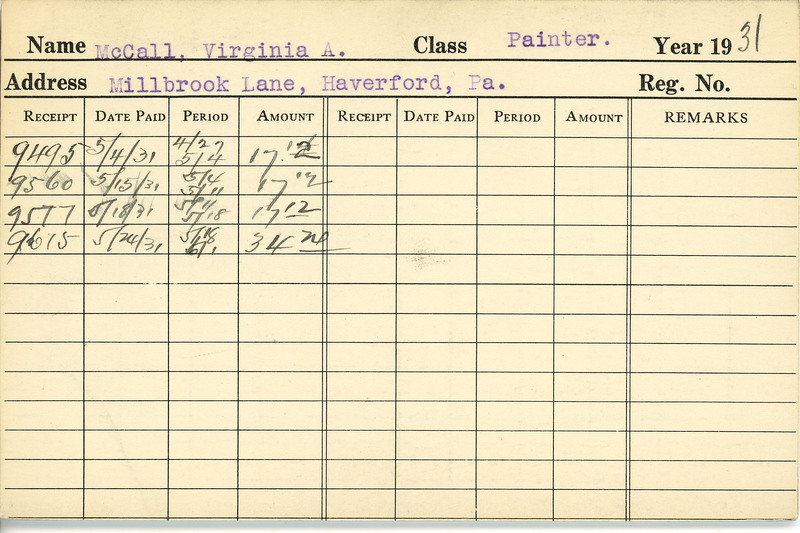 Name McCall, Virginia A. Class Painter. Year 1931
Address Millbrook Lane, Haverford, Pa. Reg. No.
RECEIPT DATE PAID PERIOD AMOUNT RECEIPT DATE PAID PERIOD AMOUNT REMARKS
9495 5/4/31 4/27 5/4 17.12
9560 5/15/31 5/4 5/11 17 12
9577 5/18/31 5/11 5/18 17 12
9615 5/24/31 5/18 6/1 34 24